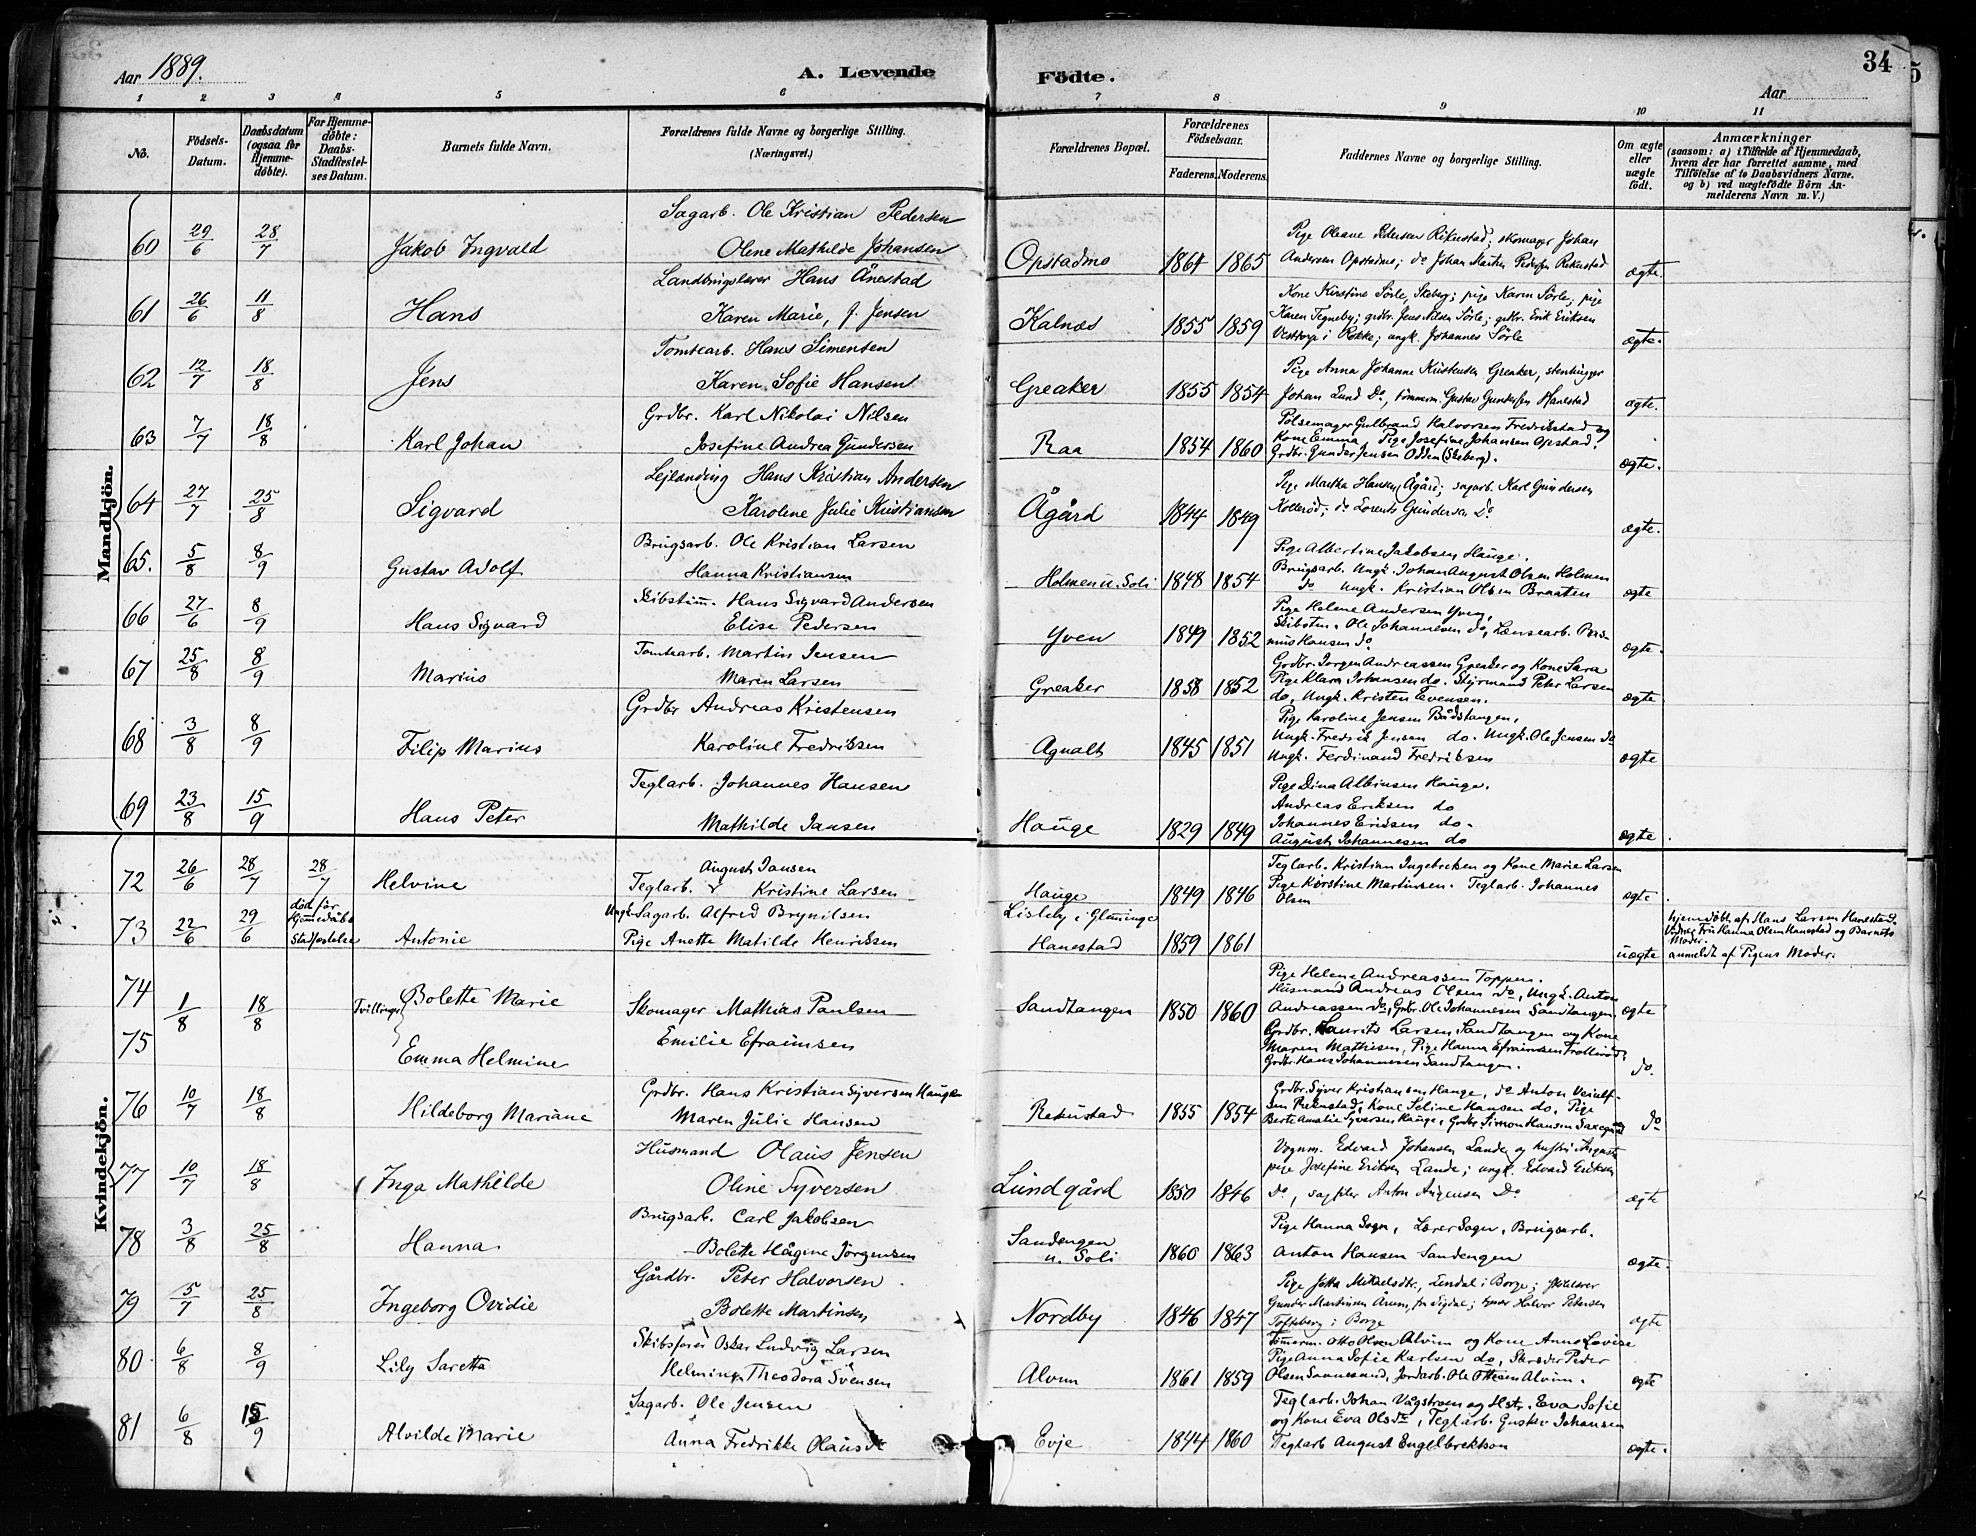 Aar 1889. A. Levende Fødte. 34
Aar
1 2 3 4 5 6 7 8 9 10 11
No.
Födsels-Datum.
Daabsdatum (ogsaa for Hjemmedöbte).
For Hjemmedöbte: Daabs-Stadfestelses Datum.
Barnets fulde Navn.
Forældrenes fulde Navne og borgerlige Stilling. (Næringsvei.)
Forældrenes Bopæl.
Forældrenes Födselsaar.
Faderens. Moderens.
Faddernes Navne og borgerlige Stilling.
Om ægte eller uægte födt.
Anmærkninger
(saasom: a) i Tilfelde af Hjemmedaab, hvem der har forrettet samme, med Tilföielse af to Daabsvidners Navne, og b) ved uægtefödte Börn Anmelderens Navn m. V.)
Mandkjön.
60 29/6 28/7 Jakob Ingvald
Sagarb. Ole Kristian Pedersen
Olene Mathilde Johansen
Opstadmo 1864 1865
Pige Oleane Pedersen Rekustad; skomager Johan
Andersen Opstadmo; do Johan Martin Pedersen Rekustad
ægte.
61 26/6 11/8 Hans
Landbrugslærer Hans Ånestad
Karen Marie, f. Jensen
Kalnæs 1855 1859
Kone Kirstine Sörle, Skeberg; pige Karen Sörle; pige
Karen Tegneby; grdbr. Jens Nilsen Sörle; grdbr. Erik Eriksen
Vesttorp i Rokke; ungk. Johannes Sörle
ægte.
62 12/7 18/8 Jens
Tomtearb. Hans Simensen
Karen Sofie Hansen
Greaker 1855 1854
Pige Anna Johanne Kristensen Greaker, stenhugger
Johan Lund Do, tömmerm. Gustav Gundersen Hanestad
ægte.
63 7/7 18/8 Karl Johan
Grdbr. Karl Nikolai Nilsen
Josefine Andrea Gundersen
Raa 1854 1860
Pölsemager Gulbrand Halvorsen Fredrikstad og
Kone Emma Pige Josefine Johansen Opstad.
Grdbr. Gunder Jensen Odden (Skeberg).
ægte.
64 27/7 25/8 Sigvard
Lejlending Hans Kristian Andersen
Karoline Julie Kristiansen
Ågård 1844 1849
Pige Martha Hansen Ågård; sagarb. Karl Gundersen
Kollerød; do Lorents Gundersen Do
ægte.
65. 5/8 8/9 Gustav Adolf
Brugsarb. Ole Kristian Larsen
Hanna Kristiansen
Holmen u. Soli 1848 1854
Pige Albertine Jakobsen Hauge.
Brugsarb. Ungk. Johan August Olsen Holmen
do Ungk. Kristian Olsen Braaten
ægte
66 27/6 8/9 Hans Sigvard
Skibstöm. Hans Sigvard Andersen
Elise Pedersen
Yven 1849 1852
Pige Helene Andersen Yven,
Skibstøm. Ole Johannesen do, Lænsearb. Ras-
mus Hansen do
ægte.
67 25/8 8/9 Marius
Tomtearb. Martin Jensen
Maren Larsen
Greaker 1858 1852
Grdbr. Jørgen Andreassen Greaker og Kone Sara
Pige Klara Johansen do. Styrmand Peter Larsen
do, Ungk. Kristen Evensen.
ægte
68 3/8 8/9 Filip Marius
Grdbr Andreas Kristensen
Karoline Fredriksen
Agnalt 1845 1851
Pige Karoline Jensen Bådstangen,
Ungk. Fredrik Jensen do. Ungk. Ole Jensen do
Ungk. Ferdinand Fredriksen
ægte
69 23/8 15/9 Hans Peter
Teglarb. Johannes Hansen
Mathilde Jansen
Hauge 1829 1849
Pige Dina Albinsen Hauge.
Andreas Eriksen do
Johannes Eriksen do.
August Johannesen do
ægte.
Kvindekjön.
72 26/6 28/7 28/7 Helvine
August Jansen
Teglarb. Kristine Larsen
Hauge 1849 1846
Teglarb. Kristian Ingebretsen og Kone Marie Larsen
Pige Kirstine Martinsen. Teglarb. Johannes
Olsen
ægte.
73 22/6 29/6 död før Hjemmedåbs Stadfestelse Antonie
Ungk. Sagarb. Alfred Brynilsen
Pige Anette Matilde Henriksen
Lisleby i Glemminge
Hanestad 1859 1861
uægte
hjemdöbt af Hans Larsen Hanestad.
Vidner Fru Hanna Olsen Hanestad og Barnets
Moder.
anmeldt af Pigens Moder.
74 1/8 18/8 Tvillinger Bolette Marie
75 Emma Helmine
Skomager Mathias Paulsen
Emilie Efraimsen
Sandtangen 1850 1860
Pige Helene Andreassen Toppen.
Husmand Andreas Olsen do, Ungk. Anton
Andreassen do, Grdbr. Ole Johannesen Sandtangen.
Grdbr. Laurits Larsen Sandtangen og Kone
Maren Mathiesen, Pige Hanna Efraimsen Trollerød,
Grdbr. Hans Johannesen Sandtangen.
ægte
do.
76 10/7 18/8 Hildeborg Mariane
Grdbr. Hans Kristian Syversen Hauge
Maren Julie Hansen
Rekustad 1855 1854
Grdbr. Syver Kristiansen Hauge, do Anton
sen Rekustad, Kone Seline Hansen do, Pige
Berte Amalie Syversen Hauge, Grdbr. Simon Hansen
do
77 10/7 18/8 Inga Mathilde
Husmand Olaus Jensen
Oline Syversen
Lundgård 1850 1846
Vognm. Edvard Johansen Lande og hustru Augusta
pige Josefine Eriksen Lande; ungk. Edvard Eriksen
Do, sagfiler Anton Do
ægte
78 3/8 25/8 Hanna
Brugsarb. Carl Jakobsen
Bolette Hågine Jørgensen
Sandengen
u. Soli 1860 1863
Pige Hanna Sogn, Lærer Sogn, Brugsarb.
Anton Hansen Sandengen
ægte.
79 5/7 25/8 Ingeborg Ovidie
Gårdbr. Peter Halvorsen
Bolette Martinsen
Nordby 1846 1847
Pige Jetta Mikkelsdtr, Lendal i Borge;
Gunder Martinsen Årum, Halvor Petersen
Tofteberg i Borge
ægte
80 6/8 8/9 Lily Saretta
Skibsfører Oskar Ludvig Larsen
Helmine Theodora Svensen
Alvim 1861 1859
Tømmerm. Otto Olsen Alvim og Kone Anne Lovise
Pige Anna Sofie Karlsen do, Skræder Peder
Olsen Sannesund, Jordarb. Ole Ottesen Alvim.
ægte
81 6/8 15/9 Alvilde Marie
Sagarb. Ole Jensen
Anna Fredrikke Olausdr
Evje 1844 1860
Teglarb. Johan Vågstrøm og Hstr. Eva Sofie
og Kone Eva Olsdr, Teglarb. Gustav Johansen
Teglarb August Engelbrektson
ægte.